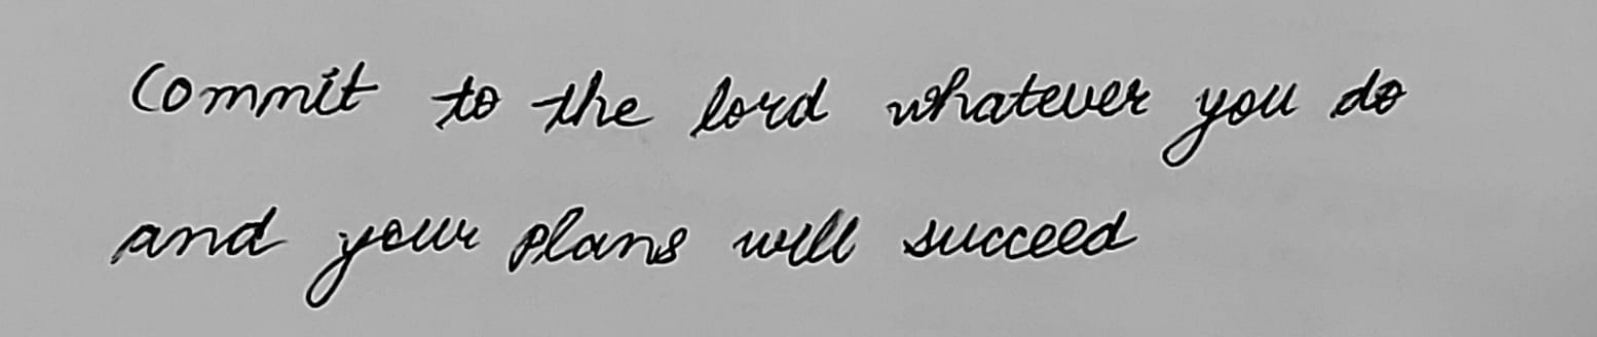 Commit to the lord whatever you do
and your plans will succeed